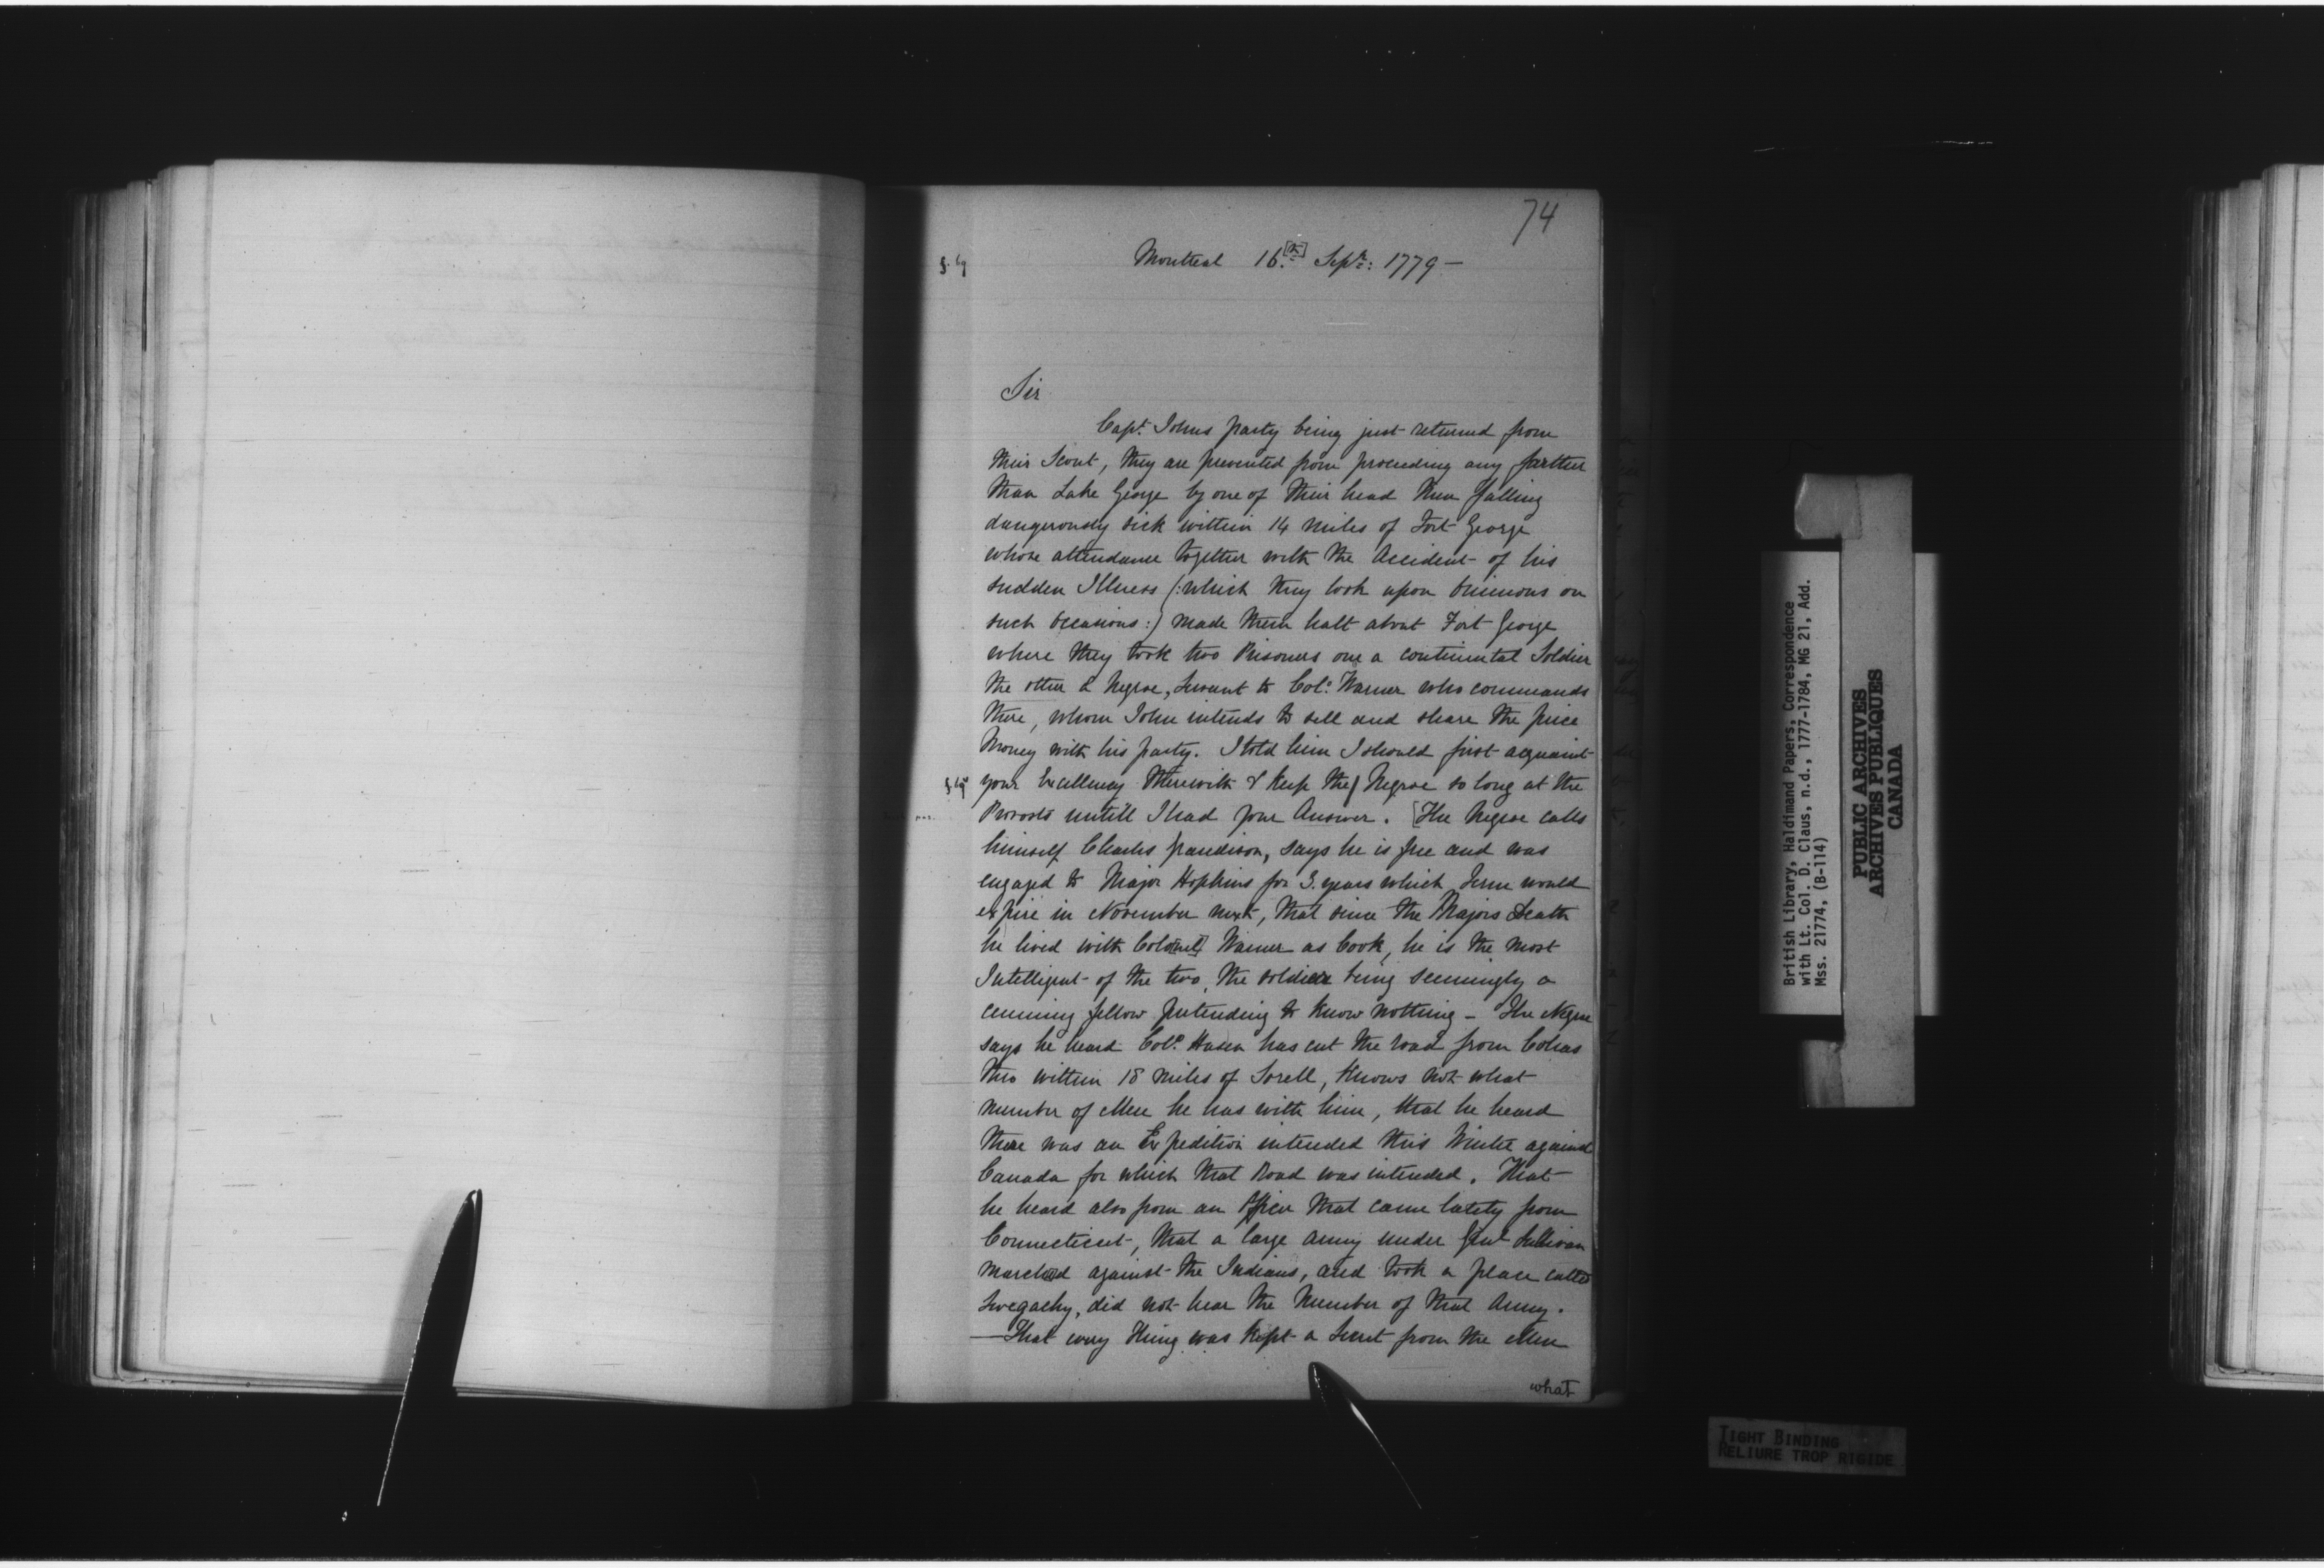 74
Montreal 16.[th] Sepr: 1779 —
Sir
Capt. Johns party being just returned from
their Scout, they are prevented from proceeding any farther
than Lake George by one of their head Men falling
dangerously sick within 14 Miles of Fort George
whose attendance together with the Accident of his
sudden Illness (:which they look upon Ominous on
such Occasions:) made them halt about Fort George
where they took two Prisoners one a continental Soldier
the other a Negroe, Servant to Colo: Warner who commands
there, whom John intends to sell and share the price
Money with his party. I told him I should first acquaint
your Excellency therewith & keep the Negroe so long at the
Provosts untill I had your Answer. [The Negroe calls
himself Charles Grandison, says he is free and was
engaged to Major Hopkins for 3. years which Term would
expire in November next, that since the Majors Death
he lived with Colo[nel] Warner as Cook, he is the most
Intelligent of the two, the soldier being seemingly a
cunning fellow pretending to know nothing — The Negroe
says he heard Colo. Hasen has cut the road from Cohas
thro within 18 Miles of Sorell, knows not what
number of Men he has with him, that he heard
there was an Expedition intended this Winter against
Canada for which that Road was intended. That
he heard also from an Officer that came lately from
Connecticut, that a large Army under Genl Sullivan
marched against the Indians, and took a place called
Swegachy, did not hear the Number of that Army.
— That every Thing was kept a Secret from the Men
what
British Library, Haldimand Papers, Correspondence
with Lt. Col. D. Claus, n.d., 1777-1784, MG 21, Add.
Mss. 21774, (B-114)
PUBLIC ARCHIVES
ARCHIVES PUBLIQUES
CANADA
TIGHT BINDING
RELIURE TROP RIGIDE